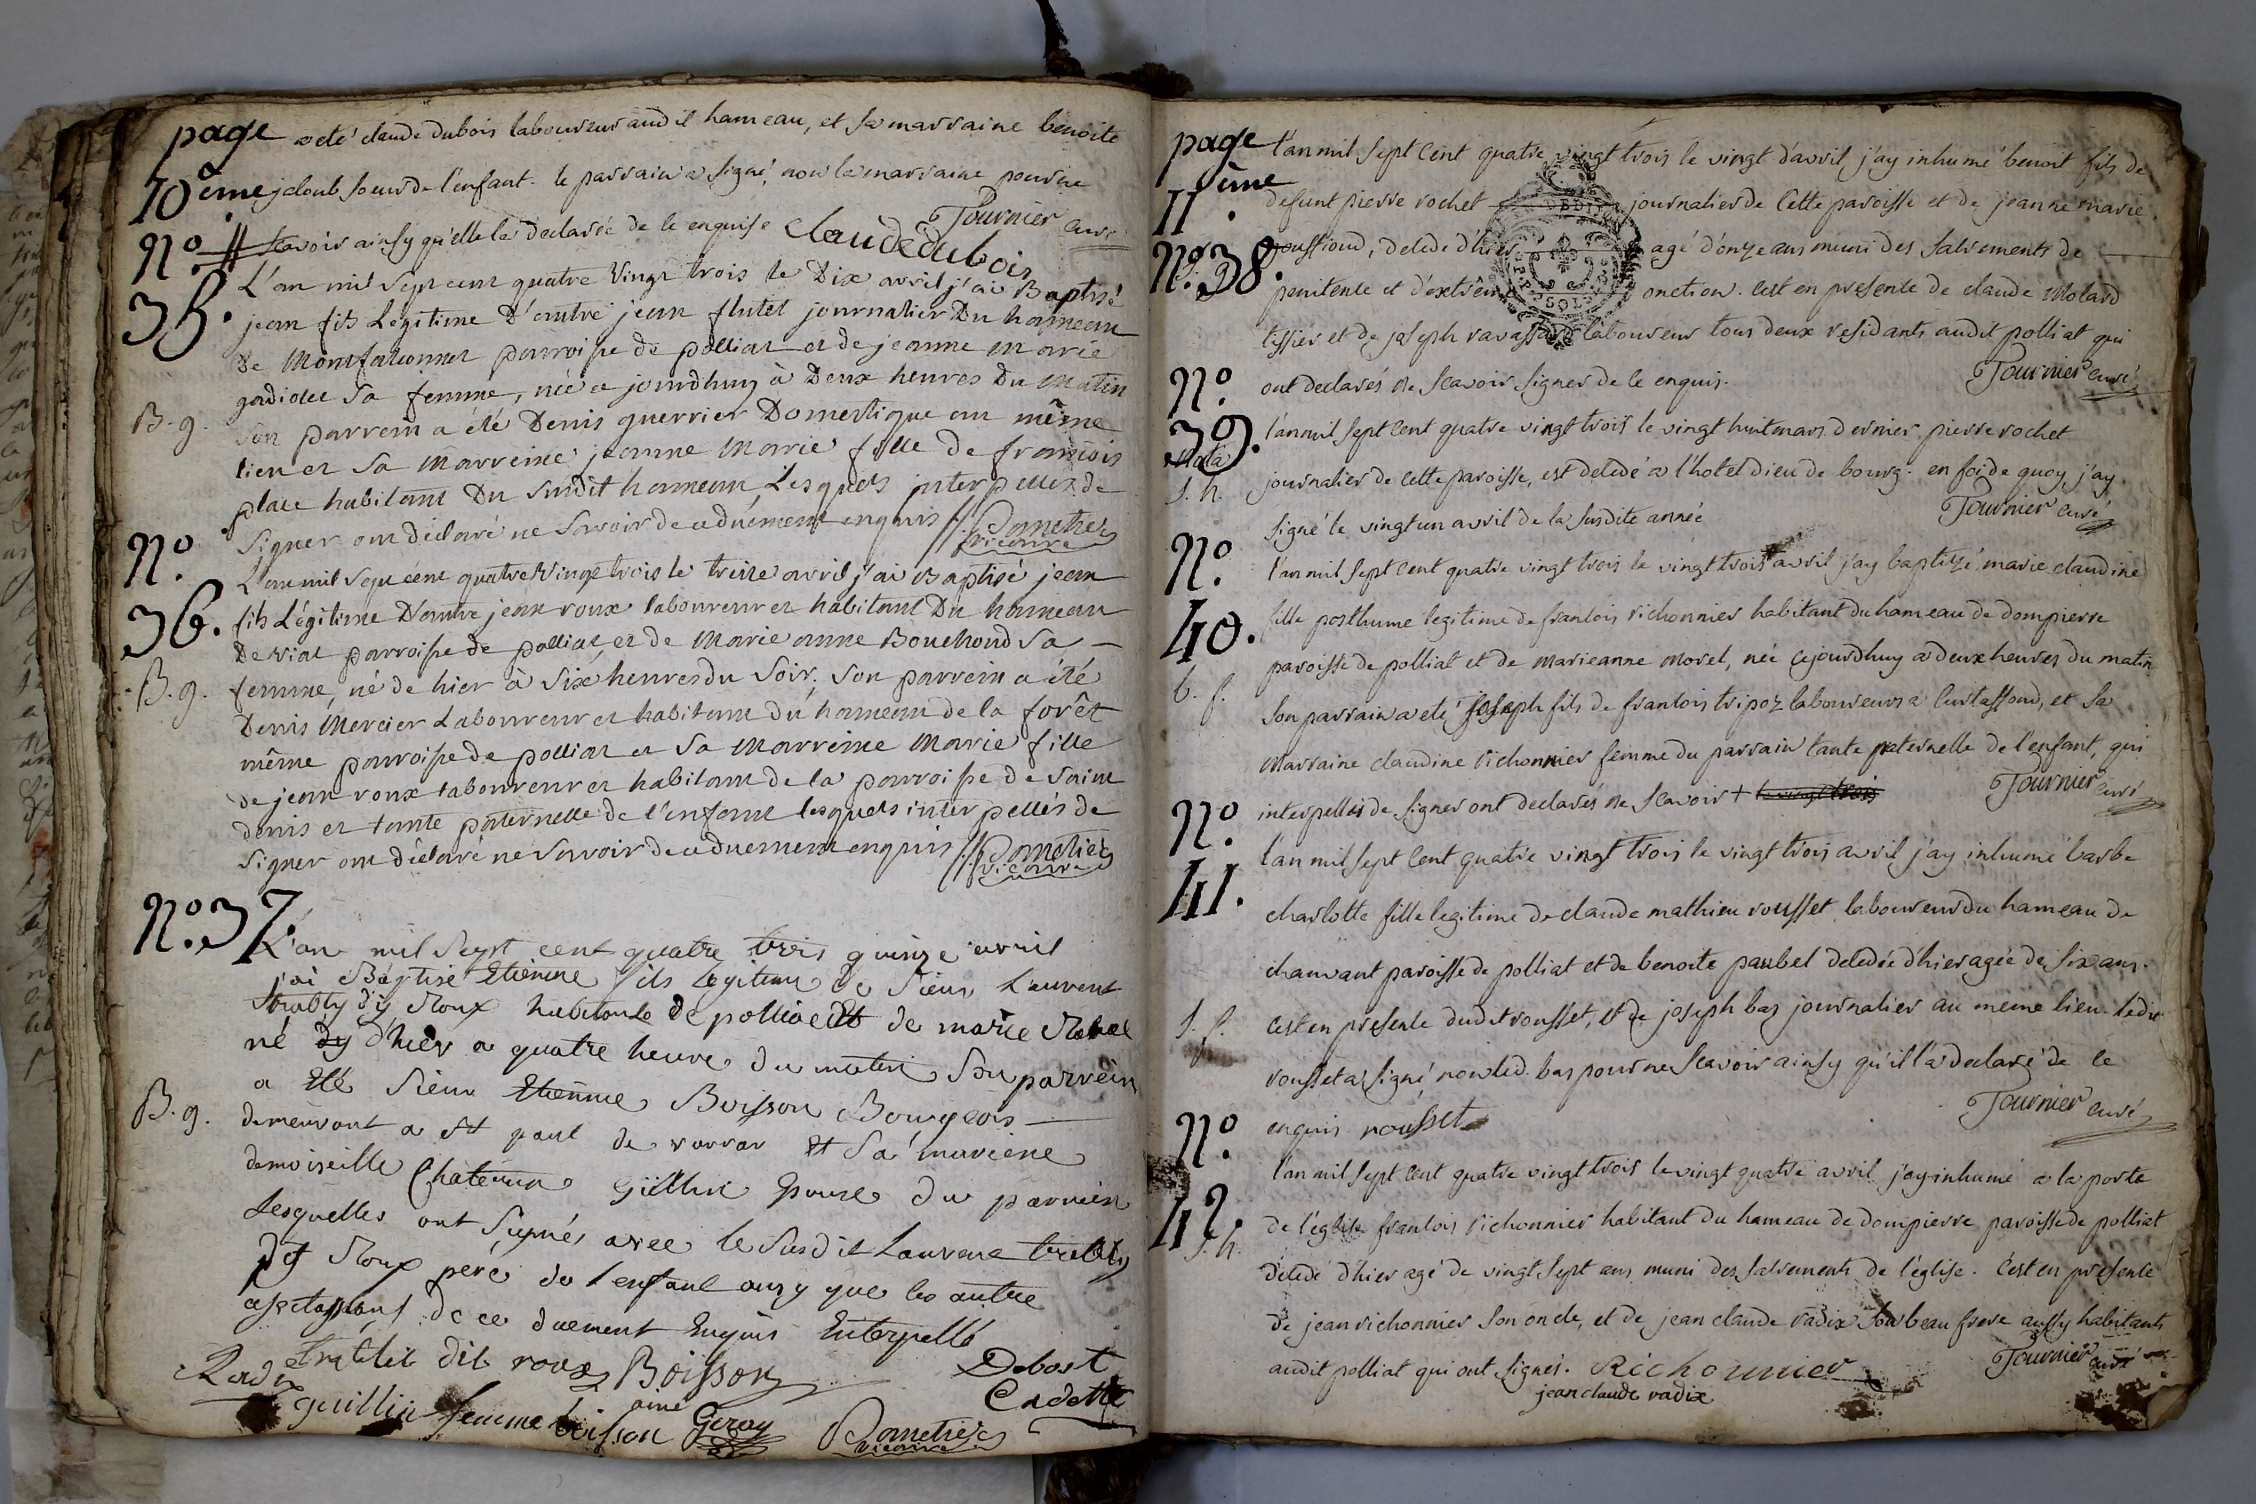 page a été claude dubois laboureur audit hameau, et sa marraine benoite
10ème jcloub soeur de l'enfant. le parrain a signé, non la marraine pour ne
scavoir ainsy qu'elle la declarée de ce enquise claude dubois Tournier curé
N.º 35.
L'an mil sept cent quatre vingt trois le Dix avril j'ai Baptisé
jean fils Légitime D'entre jean flutet journalier Du hameau
De Monfalconnet parroisse de polliat et de jeanne Marie
sa femme, née a jourdhuy à Deux heures Du Matin
B. g. Son parrein a été Denis guerrier Domestique au même
lieu et sa Marreine jeanne Marie fille de francois
place habitant Du susdit hameau, Lesquels interpellez de
Signer ont déclaré ne savoir de ce duement enquis // Dometier vicaire
N.º 36.
L'an mil sept cent quatre Vingt trois le treize avril j'ai Baptisé jean
fils Légitime D'entre jean roux laboureur et habitant Du hameau
De viat parroisse de polliat, et de Marie anne Bouchoud sa
B. g. femme, né de hier à six heures du soir; son parrein a été
Denis Mercier Laboureur et habitant du hameau de la forêt
même parroisse de polliat et sa Marreine Marie fille
de jean roux laboureur et habitant de la parroisse de saint
denis et tante paternelle de l'enfant lesquels interpellés de
signer ont déclaré ne savoir de ce duement enquis // Dometier vicaire
N.º 37.
L'an mil sept cent quatre trois quinze avril
j'ai Baptisé Etienne fils legitime de Sieur Laurent
dit Roux habitant de polliat et de marie
né dy d'hier a quatre heure du matin Son parrein
a été Sieur Etienne Boisson Bourgeois
B. g. demeurant a st paul de varax et sa mareine
demoiselle Epouse du parrein
Lesquelles ont signés avec le susdit Laurent
dit Roux pere de l'enfant ainsy que les autre
de ce duement Enquis Enterpellé
dit roux Boisson Debost
Radix Cadette
guillin femme boisson ainé Geray Dometier vicaire
page l'an mil sept cent quatre vingt trois le vingt d'avril j'ay inhumé benoit fils de
11ème defunt pierre rochet journalier de cette paroisse et de jeanne marie
N.º 38. poussioud, decedé d'hier agé d'onze ans muni des sacrements de
penitence et d'extrême onction. cest en presence de claude Molard
tissier et de joseph ravassard laboureur tous deux residants audit polliat qui
ont declarés ne scavoir signer de ce enquis. Tournier curé
N.º 39.
l'an mil sept cent quatre vingt trois le vingt huit mars dernier pierre rochet
nota
S. h. journalier de cette paroisse, est decedé a l'hotel dieu de bourg. en foi de quoy, j'ay
signé le vingt un avril de la susdite année Tournier curé
N.º 40.
l'an mil sept cent quatre vingt trois le vingt trois avril j'ay baptizé marie claudine
fille posthume legitime de francois richonnier habitant du hameau de dompierre
paroisse de polliat et de marieanne morel, née cejourdhuy a deux heures du matin
b. f. son parrain a eté joseph fils de francois tripoz laboureur a curtaffond, et sa
marraine claudine richonnier femme du parrain tante paternelle de l'enfant, qui
interpellés de signer ont declarés ne scavoir + Tournier curé
N.º 41.
l'an mil sept cent quatre vingt trois le vingt trois avril j'ay inhumé barbe
charlotte fille legitime de claude mathieu rousset laboureur du hameau de
chanvant paroisse de polliat et de benoite paubel decedée d'hier agée de six ans.
S. f. cest en presence dudit rousset, et de joseph bas journalier au meme lieu. ledit
rousset a signé, non led. bas pour ne scavoir ainsy qu'il l'a declaré de ce
enquis rousset Tournier curé
N.º 42.
l'an mil sept cent quatre vingt trois le vingt quatre avril j'ay inhumé a la porte
de l'église francois richonnier habitant du hameau de dompierre paroisse de polliat
S. h.
decedé d'hier agé de vingt sept ans, muni des sacrements de l'église. c'est en presence
de jean richonnier son oncle, et de jean claude radix son beau frere aussy habitants
audit polliat qui ont signés. Richonnier Tournier curé
jean claude radix